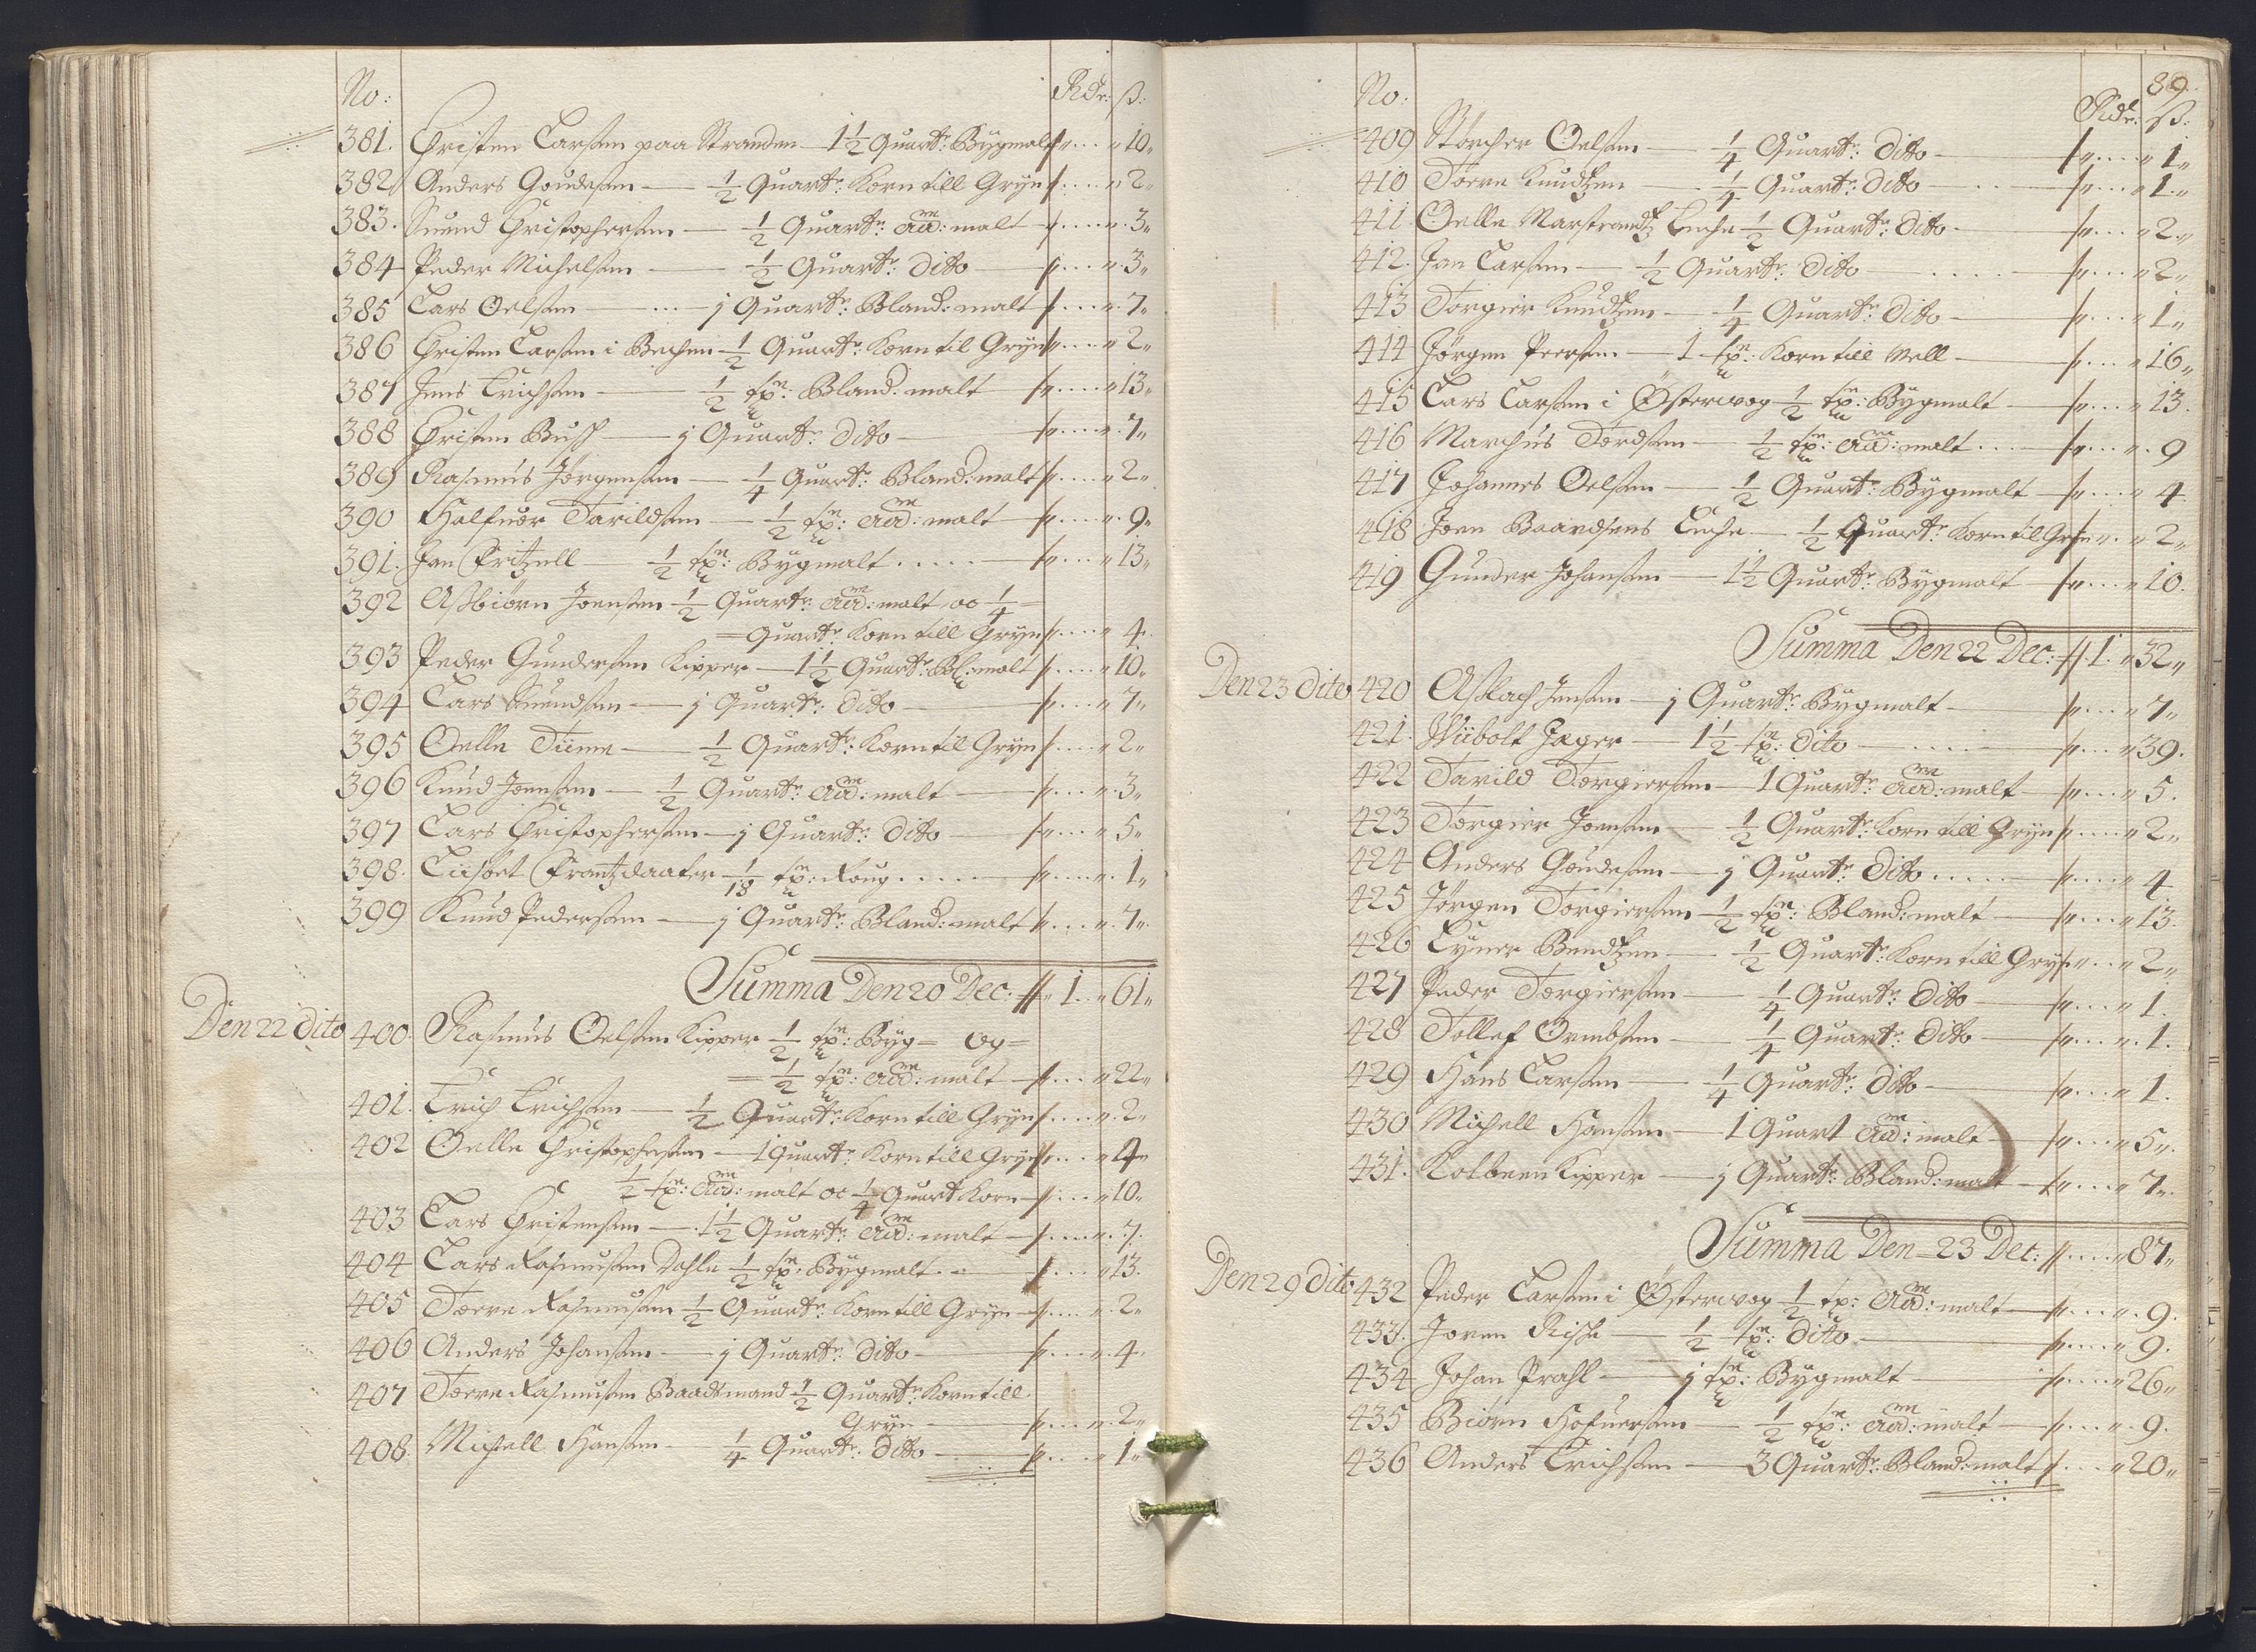 No: Rdr: ß:
381. Christen Larsen paa Stranden 1½ Quartr: Bygmalt 10
382 Anders Goudesen ½ Quartr: Korn till Gryn 2
383. Suend Christophersen ½ Quartr: malt 3
384 Peder Michelsen ½ Quartr: Ditto 3
385 Lars Oelsen j Quartr: Bland: malt 7
386 Christen Larsen i Bechen ½ Quartr: Korn til Gryn 2
387 Jens Erichsen ½ tn: Bland: malt 13
388 Christen Busch j Quartr: Ditto 7
389 Rasmus Jørgensen ¼ Quartr: Bland: malt 2
390 Halfuor Tarildsen ½ tn: malt 9
391. Jan Fritzell ½ tn: Bygmalt 13
392 Assbiørn Joensen ½ Quartr: malt oc ¼ =
= Quartr: Korn till Gryn 4
393 Peder Gundersen Kipper 1½ Quartr: Bl: malt 10
394 Lars Suendsen j Quartr: Ditto 7
395 Oelle Tiime ½ Quartr: Korn til Gryn 2
396 Knud Joensen ½ Quartr: malt 3
397 Lars Christophersen j Quartr: Ditto 5
398. Liisbet Frantzdaater 1/18 tn: Roug 1
399 Knud Pedersen j Quartr: Bland: malt 7
Summa Den 20 Dec: 1 61
Den 22 Dito 400. Rasmus Oelsen Kipper ½ tn: Byg = og =
= ½ tn: malt 22
401. Erich Erichsen ½ Quartr: Korn till Gryn 2
402 Oelle Christophersen 1 Quartr: Korn till Gryn 4
½ tn: malt oc ¼ Quart Korn 10
403 Lars Christensen 1½ Quartr: malt 7
404 Lars Rasmusen Dahle ½ tn: Bygmalt 13
405 Torre Rasmusen ½ Quartr: Korn till Gryn 2
406 Anders Johansen j Quartr: Dito 4
407 Torre Rasmusen Baadsmand ½ Quartr: Korn till
Gryn 2
408. Michell Hansen ¼ Quartr: Ditto 1
89.
No: Rdr: ß:
409 Storcher Oelsen ¼ Quartr: Ditto 1
410 Torre Knudtzen ¼ Quartr: Ditto 1
411 Oelle Marstrandtz Enche ½ Quartr: Ditto 2
412. Jan Larsen ½ Quartr: Ditto 2
413 Torgier Knudtzen ¼ Quartr: Ditto 1
414 Jörgen Peersen 1 tn: Korn till Mell 16
415 Lars Larsen i Østerwog ½ tn: Bygmalt 13
416 Marchus Tordsen ½ tn: malt 9
417 Johannes Oelsen ½ Quart: Bygmalt 4
418 Joen Baardsens Enche ½ Quartr: Korn til Gryn 2
419 Gunder Johansen 1½ Quartr: Bygmalt 10
Summa Den 22 Dec: 1. 32
Den 23 Dito 420 Asslach Jensen j Quartr: Bygmalt 7
421. Wiibolt Jager 1½ tn: Dito 39.
422 Tarild Torgiersen 1 Quartr: malt 5.
423 Torgier Joensen ½ Quartr: Korn till Gryn 2
424 Anders Goudesen j Quartr: Dito 4
425 Jörgen Torgiersen ½ tn: Bland: malt 13.
426 Lyner Bendtzen ½ Quartr: Korn till Gryn 2
427 Peder Torgiersen ¼ Quartr: Ditto 1.
428 Tollef Ormbsen ¼ Quartr: Ditto 1.
429 Hans Larsen ¼ Quartr: Ditto 1.
430 Michell Hansen 1 Quart malt 5
431. Kolbeen Kipper j Quartr: Bland: malt 7
Summa Den 23 Dec: 87
Den 29 Dito 432 Peder Larsen i Østerwog ½ tn: malt 9.
433. Joren Rische ½ tn: Dito 9.
434 Johan Prahl j tn: Bygmalt 26
435 Biörn Hofuersen ½ tn: malt 9.
436 Anders Erichsen 3 Quartr: Bland: malt 20